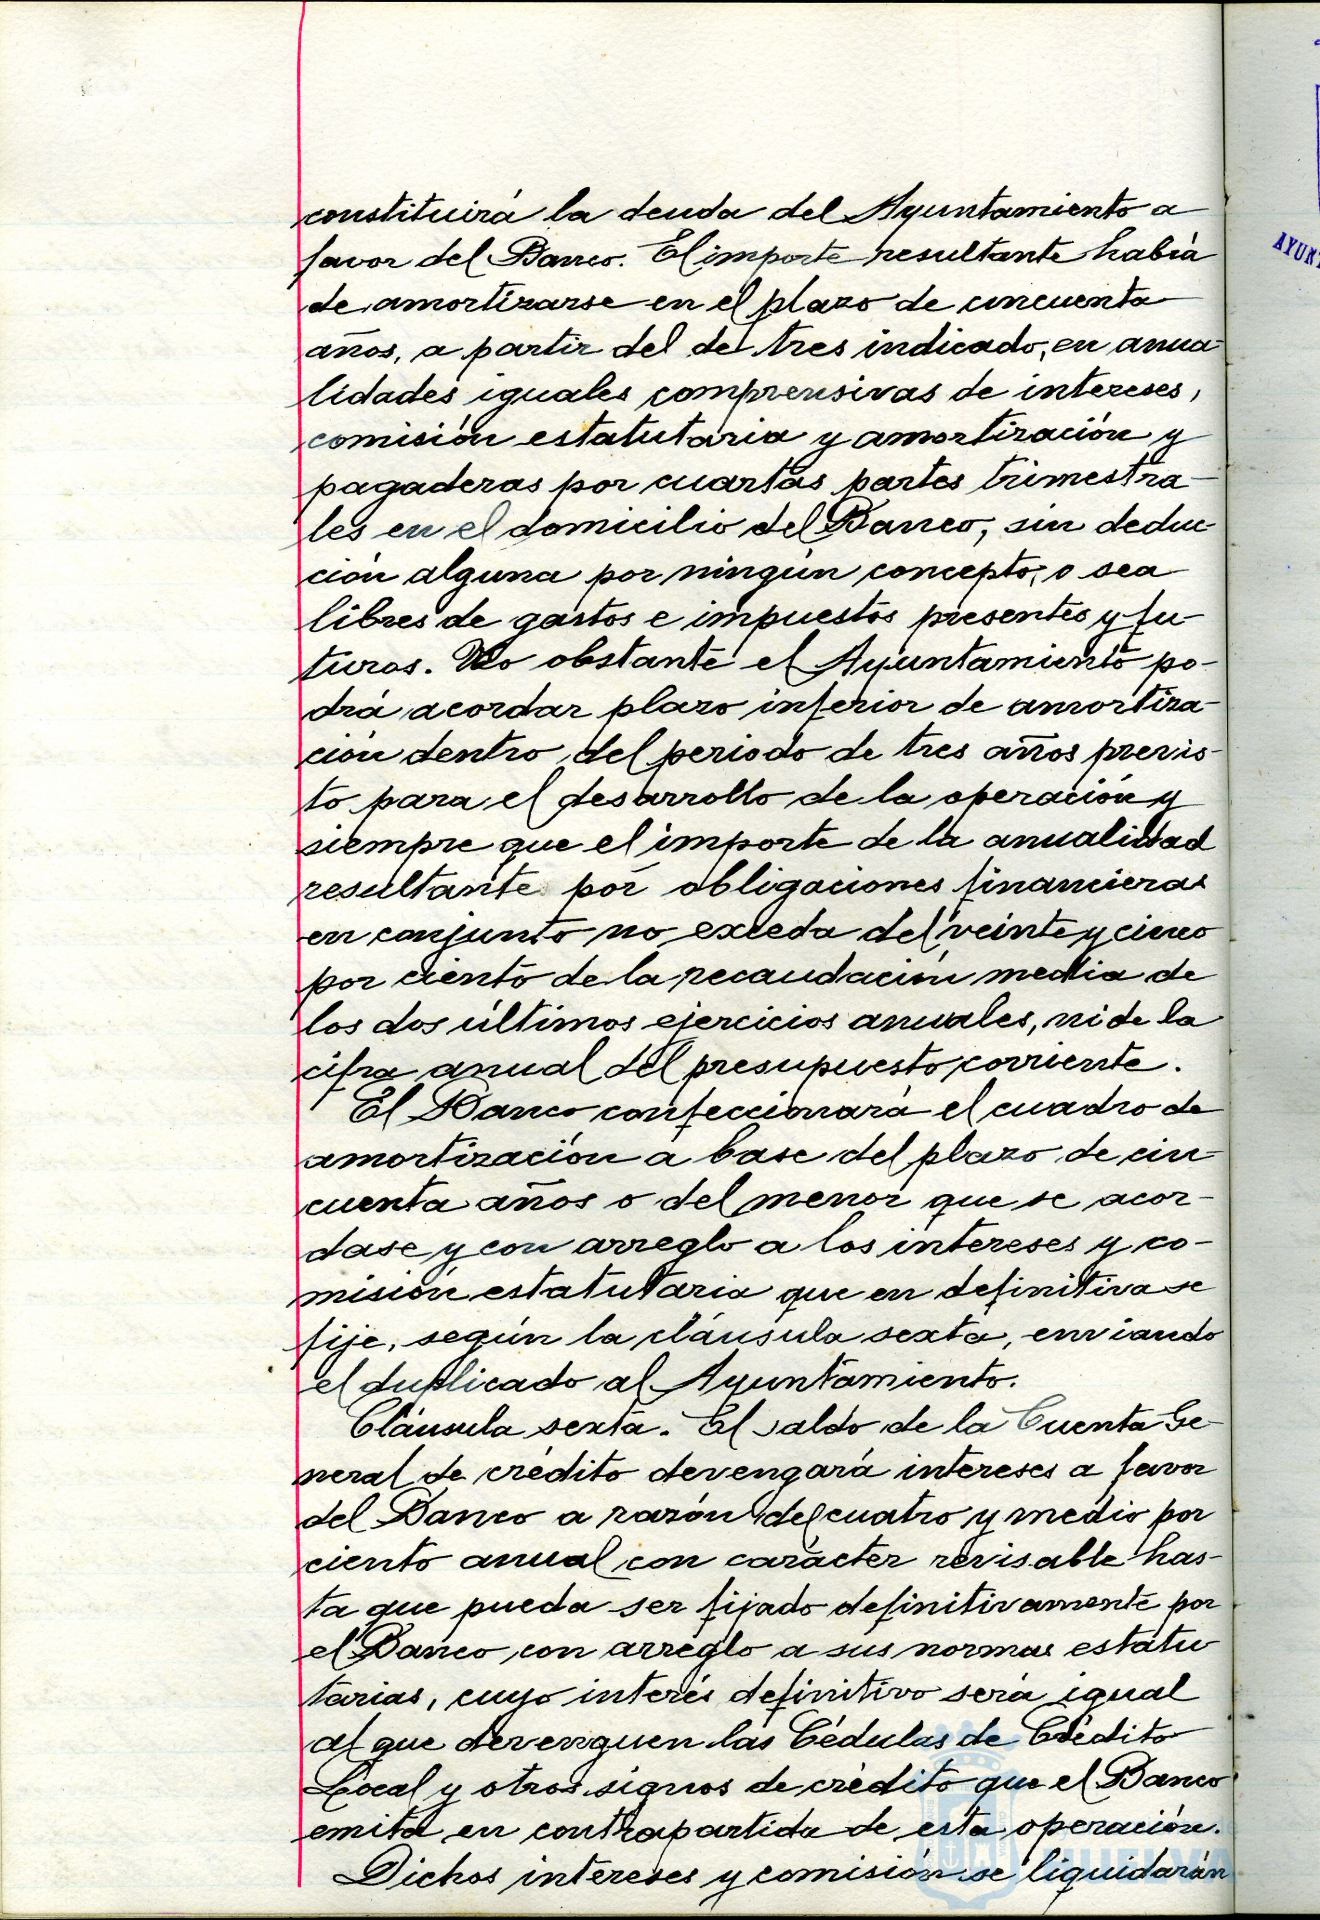 constituirá la deuda del Ayuntamiento a
favor del Banco. El importe resultante habrá
de amortizarse en el plazo de cincuenta
años, a partir del de tres indicado, en anua-
lidades iguales comprensivas de intereses,
comisión estatutaria y amortización y
pagaderas por cuartas partes trimestra-
les en el domicilio del Banco, sin deduc-
ción alguna por ningún concepto, o sea
libres de gastos e impuestos presentes y fu-
turos. No obstante el Ayuntamiento po-
drá acordar plazo inferior de amortiza-
ción dentro del periodo de tres años previs-
to para el desarrollo de la operación y
siempre que el importe de la anualidad
resultante por obligaciones financieras
en conjunto no exceda del veinte y cinco
por ciento de la recaudación media de
los dos últimos ejercicios anuales, ni de la
cifra anual del presupuesto corriente.
El Banco confeccionará el cuadro de
amortización a base del plazo de cin-
cuenta años o del menor que se acor-
dase y con arreglo a los intereses y co-
misión estatutaria que en definitiva se
fije, según la cláusula sexta, enviando
el duplicado al Ayuntamiento.
Cláusula sexta. El saldo de la Cuenta Ge-
neral de crédito devengará intereses a favor
del Banco a razón del cuatro y medio por
ciento anual con carácter revisable has-
ta que pueda ser fijado definitivamente por
el Banco con arreglo a sus normas estatu
tarias, cuyo interés definitivo será igual
al que devenguen las Cédulas de Crédito
Local y otros signos de crédito que el Banco
emita en contrapartida de esta operación.
Dichos intereses y comisión se liquidarán
AYUNT
HUELVA